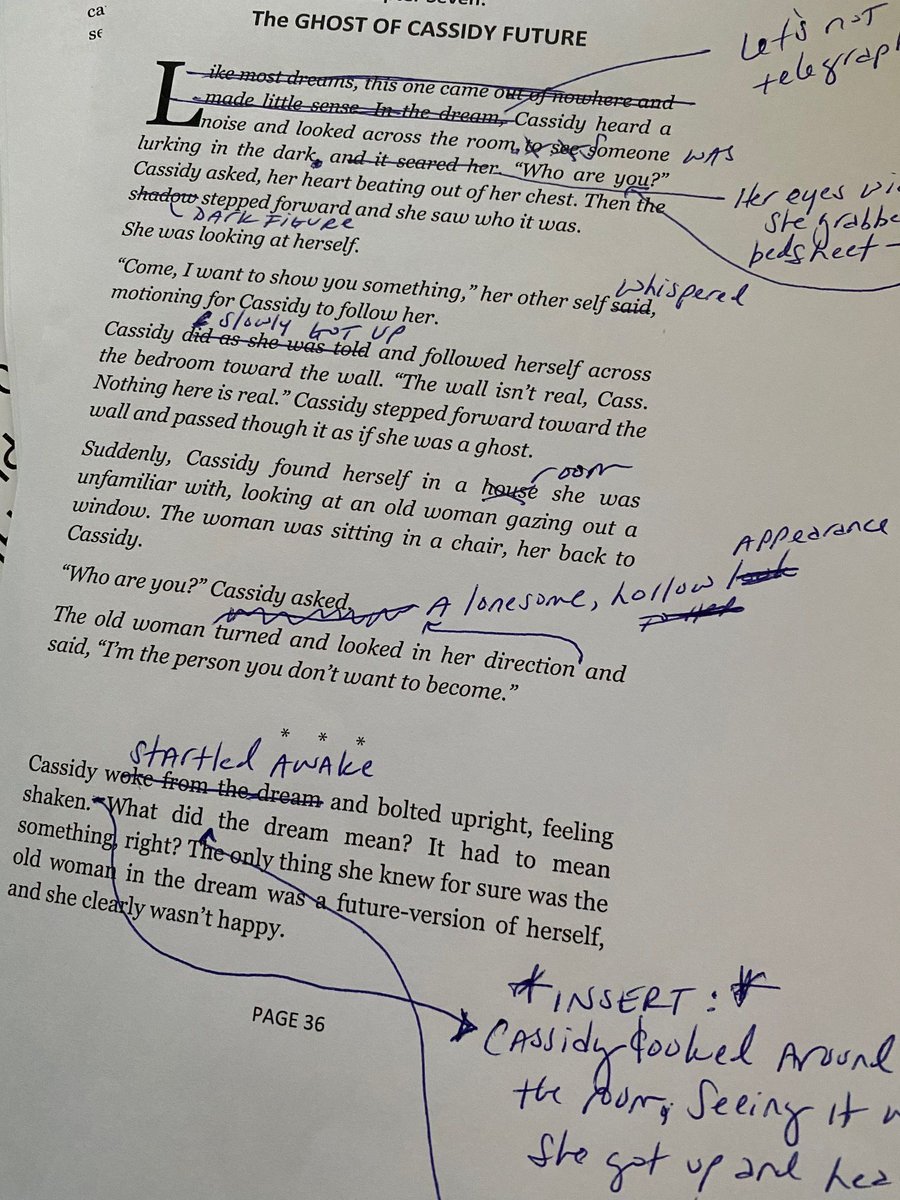 ca
se
The GHOST OF CASSIDY FUTURE
Let's not
telegraph
Like most dreams, this one came out of nowhere and
made little sense. In the dream, Cassidy heard a
noise and looked across the room, to see someone was
lurking in the dark, and it scared her. “Who are you?”
Cassidy asked, her heart beating out of her chest. Then the
shadow stepped forward and she saw who it was.
DARK FIGURE
Her eyes
She grabbe
bedsheet —
She was looking at herself.
“Come, I want to show you something,” her other self said,
whispered
motioning for Cassidy to follow her.
slowly got up
Cassidy did as she was told and followed herself across
the bedroom toward the wall. “The wall isn’t real, Cass.
Nothing here is real.” Cassidy stepped forward toward the
wall and passed though it as if she was a ghost.
room
Suddenly, Cassidy found herself in a house she was
unfamiliar with, looking at an old woman gazing out a
window. The woman was sitting in a chair, her back to
Cassidy.
Appearance
“Who are you?” Cassidy asked,
A lonesome, hollow look
The old woman turned and looked in her direction and
said, “I’m the person you don’t want to become.”
* * *
startled AWAKE
Cassidy woke from the dream and bolted upright, feeling
shaken. What did the dream mean? It had to mean
something, right? The only thing she knew for sure was the
old woman in the dream was a future-version of herself,
and she clearly wasn’t happy.
PAGE 36
*INSERT:*
CASSIdy looked Around
the room, Seeing it
She got up and hea